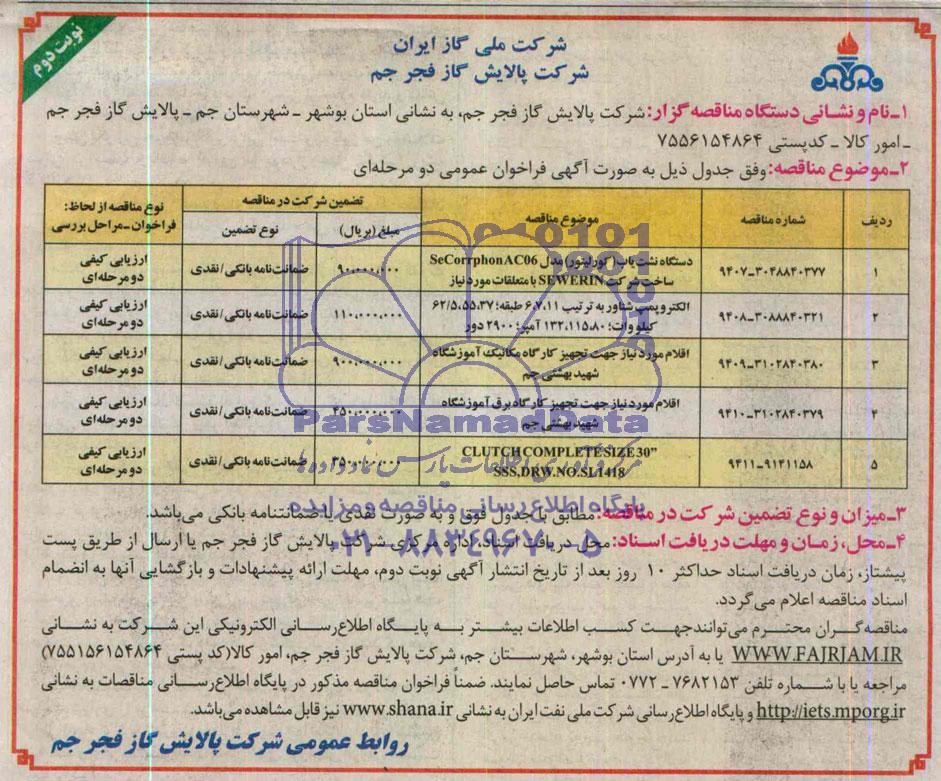 نوبت دوم
شرکت ملی گاز ایران
شرکت پالایش گاز فجر جم
۱ـ نام و نشانی دستگاه مناقصه گزار: شرکت پالایش گاز فجر جم، به نشانی استان بوشهر ـ شهرستان جم ـ پالایش گاز فجر جم
ـ امور کالا ـ کدپستی ۷۵۵۶۱۵۴۸۶۴
۲ـ موضوع مناقصه: وفق جدول ذیل به صورت آگهی فراخوان عمومی دو مرحله‌ای
ردیف شماره مناقصه موضوع مناقصه تضمین شرکت در مناقصه نوع مناقصه از لحاظ:
مبلغ (بریال) نوع تضمین فراخوان ـ مراحل بررسی
۱ ۹۴۰۷ـ۳۰۴۸۸۴۰۳۷۷ دستگاه نشت یاب (کورلیتور) مدل SeCorrphonAC06 ۹۰،۰۰۰،۰۰۰ ضمانت‌نامه بانکی / نقدی ارزیابی کیفی
ساخت شرکت SEWERIN با متعلقات مورد نیاز دو مرحله‌ای
۲ ۹۴۰۸ـ۳۰۸۸۸۴۰۳۲۱ الکتروپمپ شناور به ترتیب ۶،۷،۱۱ طبقه؛ ۶۲/۵،۵۵،۳۷ ۱۱۰،۰۰۰،۰۰۰ ضمانت‌نامه بانکی / نقدی ارزیابی کیفی
کیلو وات؛ ۱۳۲،۱۱۵،۸۰ آمپر؛ ۲۹۰۰ دور دو مرحله‌ای
۳ ۹۴۰۹ـ۳۱۰۲۸۴۰۳۸۰ اقلام مورد نیاز جهت تجهیز کارگاه مکانیک آموزشگاه ۹۰۰،۰۰۰،۰۰۰ ضمانت‌نامه بانکی / نقدی ارزیابی کیفی
شهید بهشتی جم دو مرحله‌ای
۴ ۹۴۱۰ـ۳۱۰۲۸۴۰۳۷۹ اقلام مورد نیاز جهت تجهیز کارگاه برق آموزشگاه ۴۵۰،۰۰۰،۰۰۰ ضمانت‌نامه بانکی / نقدی ارزیابی کیفی
شهید بهشتی جم دو مرحله‌ای
۵ ۹۴۱۱ـ۹۱۴۱۱۵۸ CLUTCH COMPLETE SIZE 30" ۳۵۰،۰۰۰،۰۰۰ ضمانت‌نامه بانکی / نقدی ارزیابی کیفی
SSS,DRW.NO.SL1418 دو مرحله‌ای
ParsNamadData
پایگاه اطلاع رسانی مناقصه و مزایده
۰۲۱-۸۸۳۴۹۶۷۰-۵
۳ـ میزان و نوع تضمین شرکت در مناقصه: مطابق با جدول فوق و به صورت نقدی یا ضمانتنامه بانکی می‌باشد.
۴ـ محل، زمان و مهلت دریافت اسناد: محل دریافت اسناد، اداره مرکزی شرکت پالایش گاز فجر جم یا ارسال از طریق پست
پیشتاز، زمان دریافت اسناد حداکثر ۱۰ روز بعد از تاریخ انتشار آگهی نوبت دوم، مهلت ارائه پیشنهادات و بازگشایی آنها به انضمام
اسناد مناقصه اعلام می گردد.
مناقصه گران محترم می‌توانند جهت کسب اطلاعات بیشتر به پایگاه اطلاع‌رسانی الکترونیکی این شرکت به نشانی
WWW.FAJRJAM.IR یا به آدرس استان بوشهر، شهرستان جم، شرکت پالایش گاز فجر جم، امور کالا(کد پستی ۷۵۵۱۵۶۱۵۴۸۶۴)
مراجعه یا با شماره تلفن ۷۶۸۲۱۵۳ ـ ۰۷۷۲ تماس حاصل نمایند. ضمناً فراخوان مناقصه مذکور در پایگاه اطلاع‌رسانی مناقصات به نشانی
http://iets.mporg.ir و پایگاه اطلاع رسانی شرکت ملی نفت ایران به نشانی www.shana.ir نیز قابل مشاهده می‌باشد.
روابط عمومی شرکت پالایش گاز فجر جم